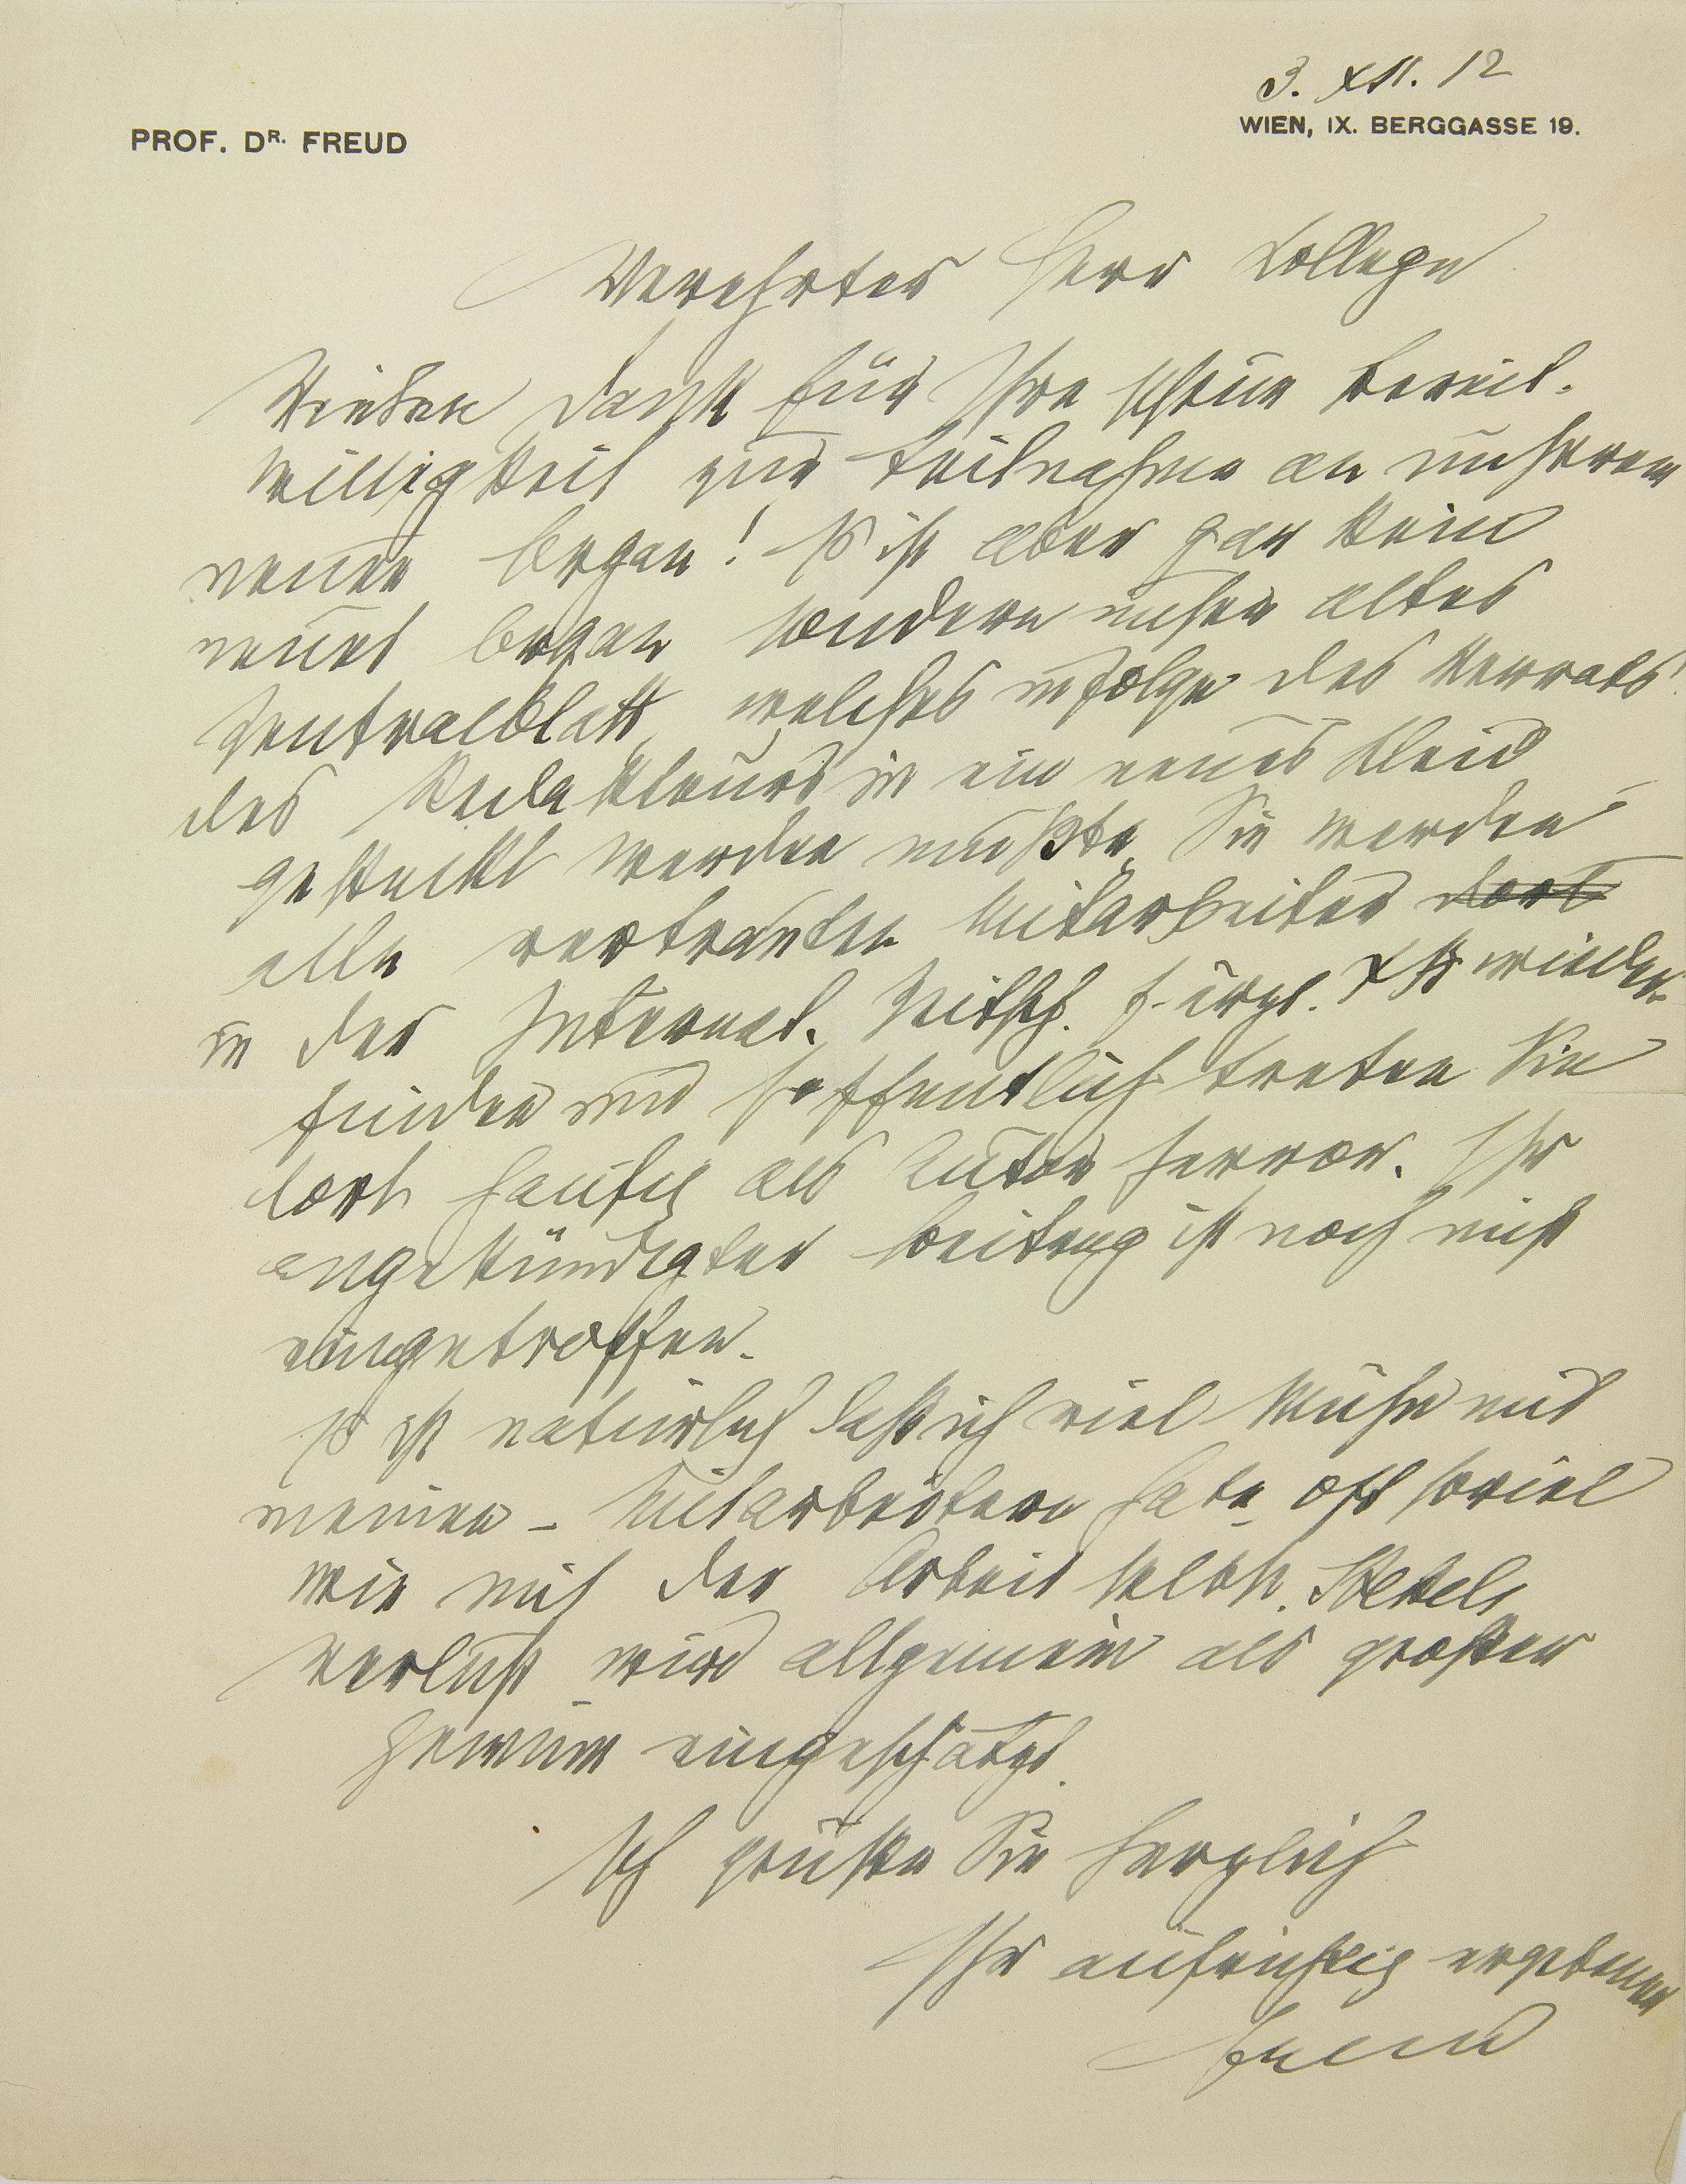 3. XII. 12
PROF. DR. FREUD
WIEN, IX. BERGGASSE 19.
Verehrter Herr College
Vielen Dank für Ihre schöne Bereit-
willigkeit zur Teilnahme an unserem
neuen Organ! Es ist aber gar kein
neues Organ sondern unser altes
Zentralblatt, welches infolge des Verrats
des Redakteurs in ein neues Kleid
gesteckt werden mußte. Sie werden
alle vertrauten Mitarbeiter dort
in der Internat. Zeitsch. f. ärztl. ΨA wieder-
finden und hoffentlich treten Sie
dort häufig als Autor hervor. Ihr
angekündigter Beitrag ist noch nicht
eingetroffen.
Es ist natürlich daß ich viel Mühe mit
meinen – Mitarbeitern habe, oft soviel
wie mit der Arbeit selbst. Stekels
Verlust wird allgemein als großer
Gewinn eingeschätzt.
Ich grüße Sie herzlich
Ihr aufrichtig ergebener
Freud